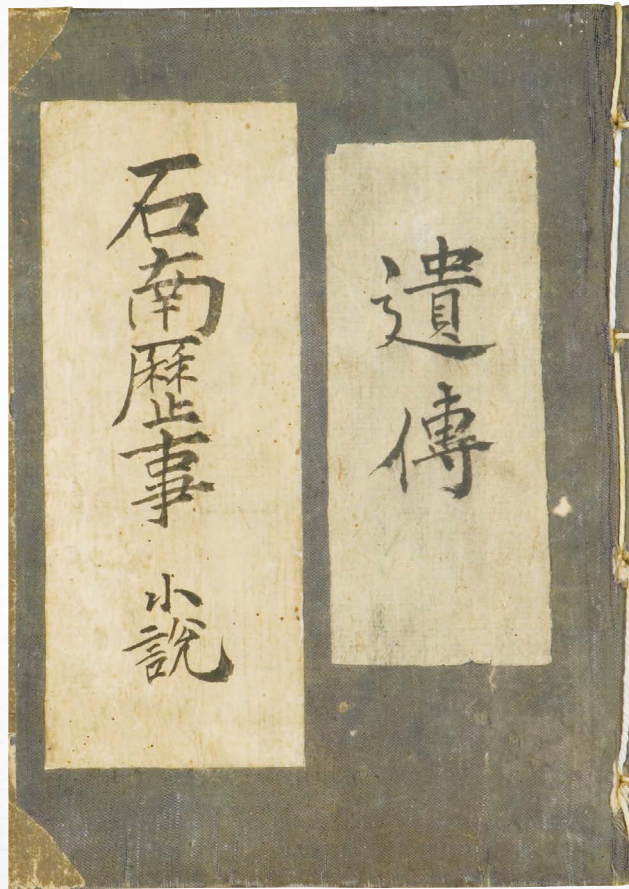 遺傳
石南歷事 小說